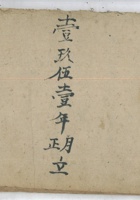 壹玖伍壹年正月立